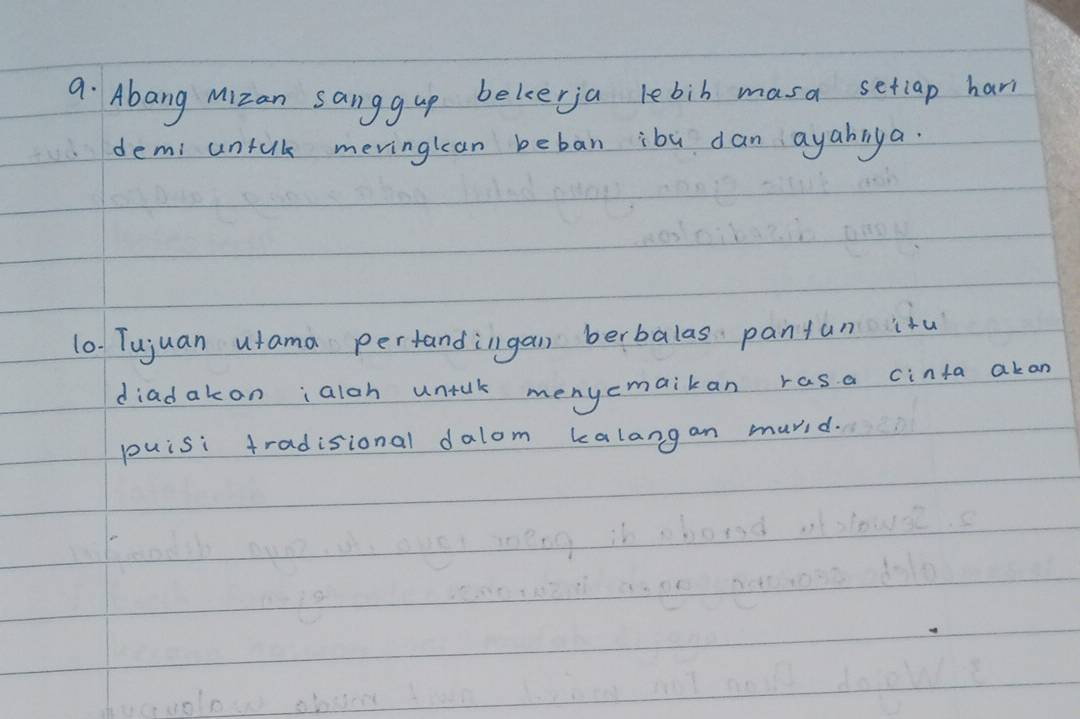 9. Abang Mizan sanggup bekerja lebih masa setiap hari
demi untuk meringkan beban ibu dan ayahnya.
10. Tujuan utama pertandingan berbalas pantun itu
diadakan ialah untuk menyemaikan rasa cinta akan
puisi tradisional dalam kalangan murid.